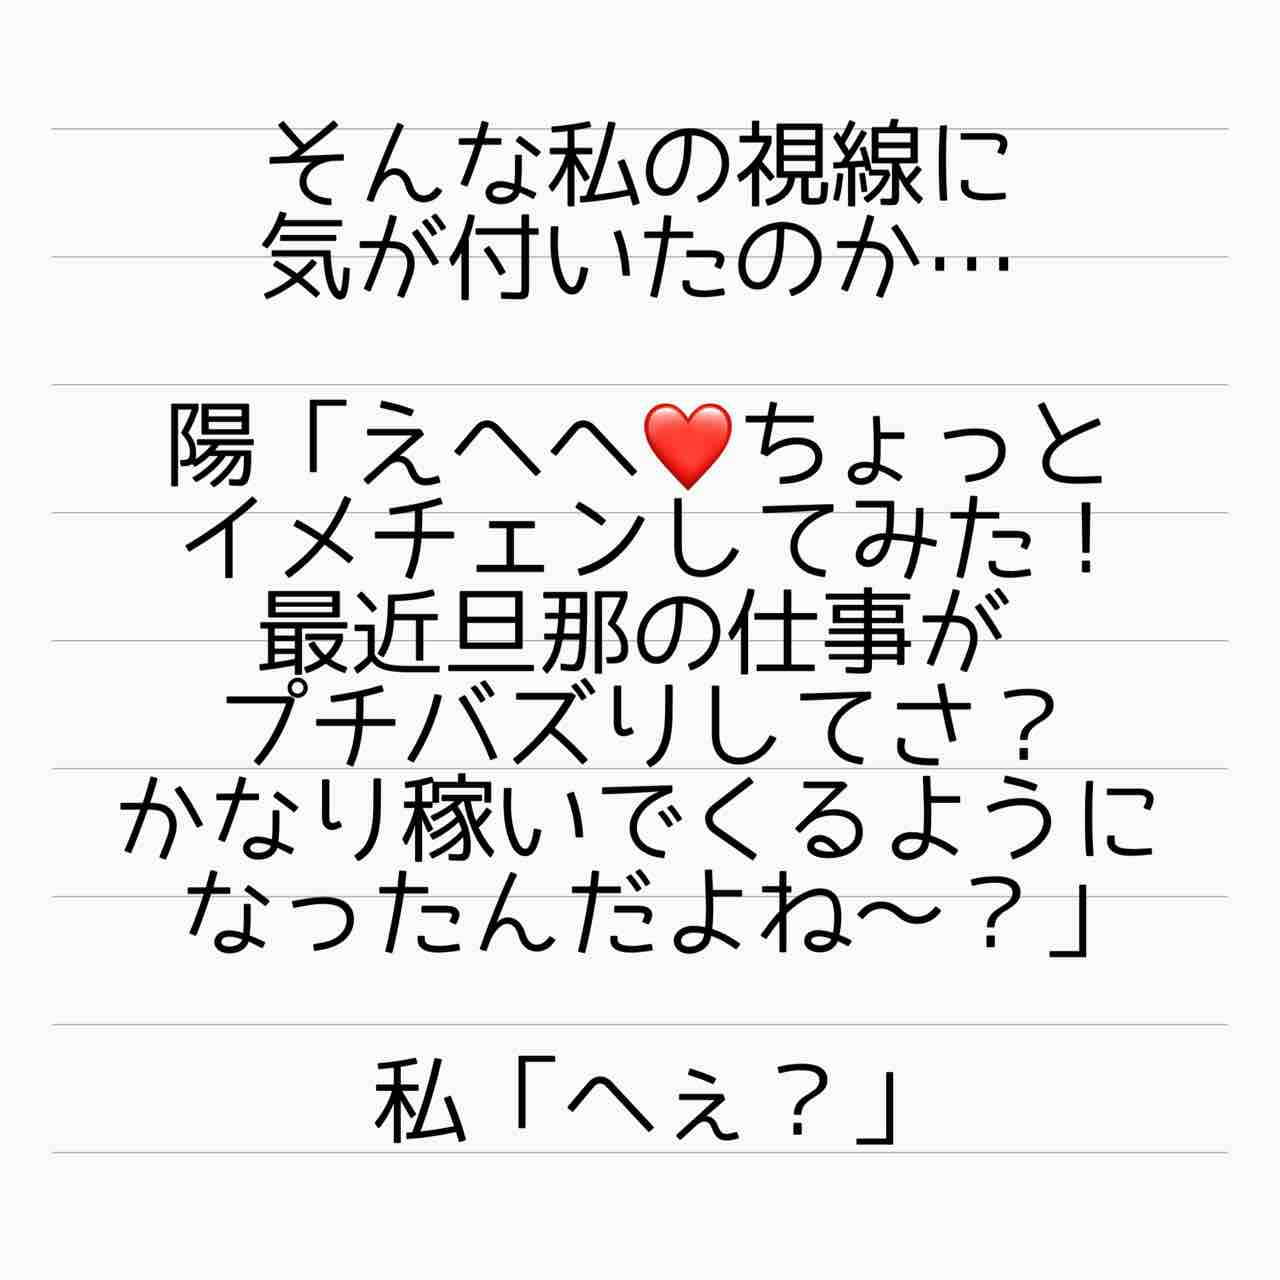 そんな私の視線に
気が付いたのか…
陽「えへへ❤️ちょっと
イメチェンしてみた！
最近旦那の仕事が
プチバズりしてさ？
かなり稼いでくるように
なったんだよね〜？」
私「へぇ？」